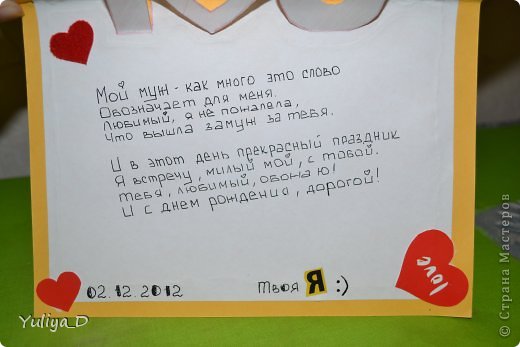 Мой муж - как много это слово
Обозначает для меня.
Любимый, я не пожалела,
Что вышла замуж за тебя.
И в этот день прекрасный праздник
Я встречу, милый мой, с тобой.
Тебя, любимый, обожаю!
И с днем рождения, дорогой!
love
02.12.2012 Твоя Я :)
Yuliya_D
© Страна Мастеров